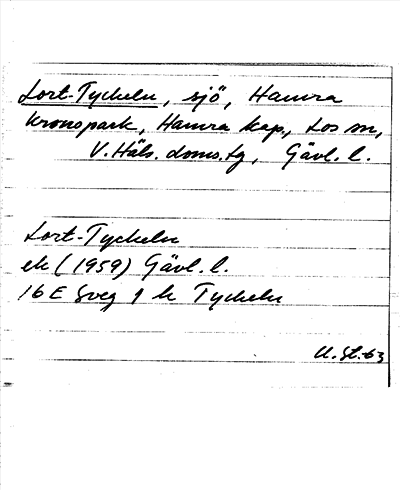 Lort-Tyckeln, sjö, Hamra
kronopark, Hamra kap., Los sn,
V. Häls. doms. tg, Gävl. l.
Lort-Tyckeln
ek (1959) Gävl. l.
16 E Sveg 9 h Tyckeln
U. St. 63